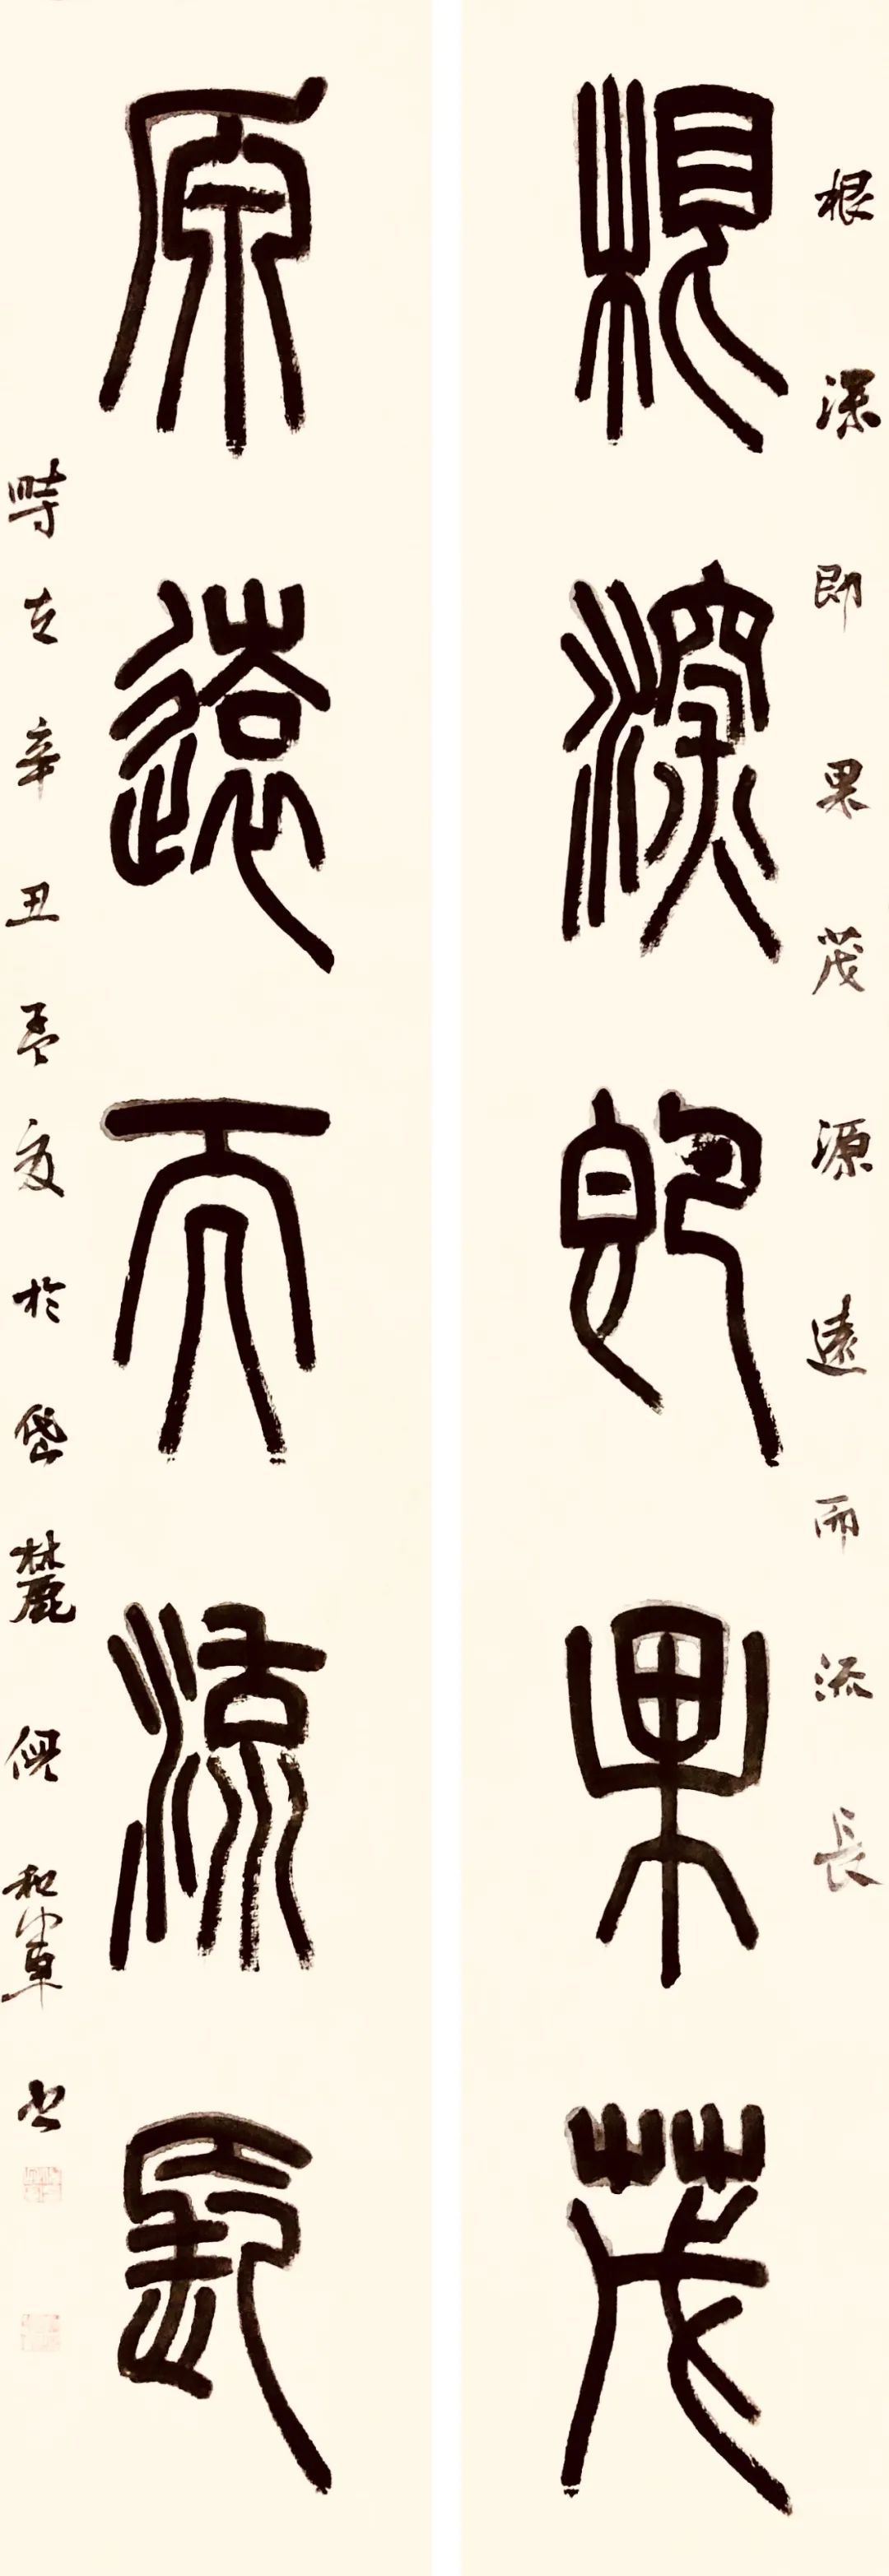 根深即果茂源遠而流長
根深即果茂
原遠而流長
時在辛丑孟夏於岱麓倪和軍書